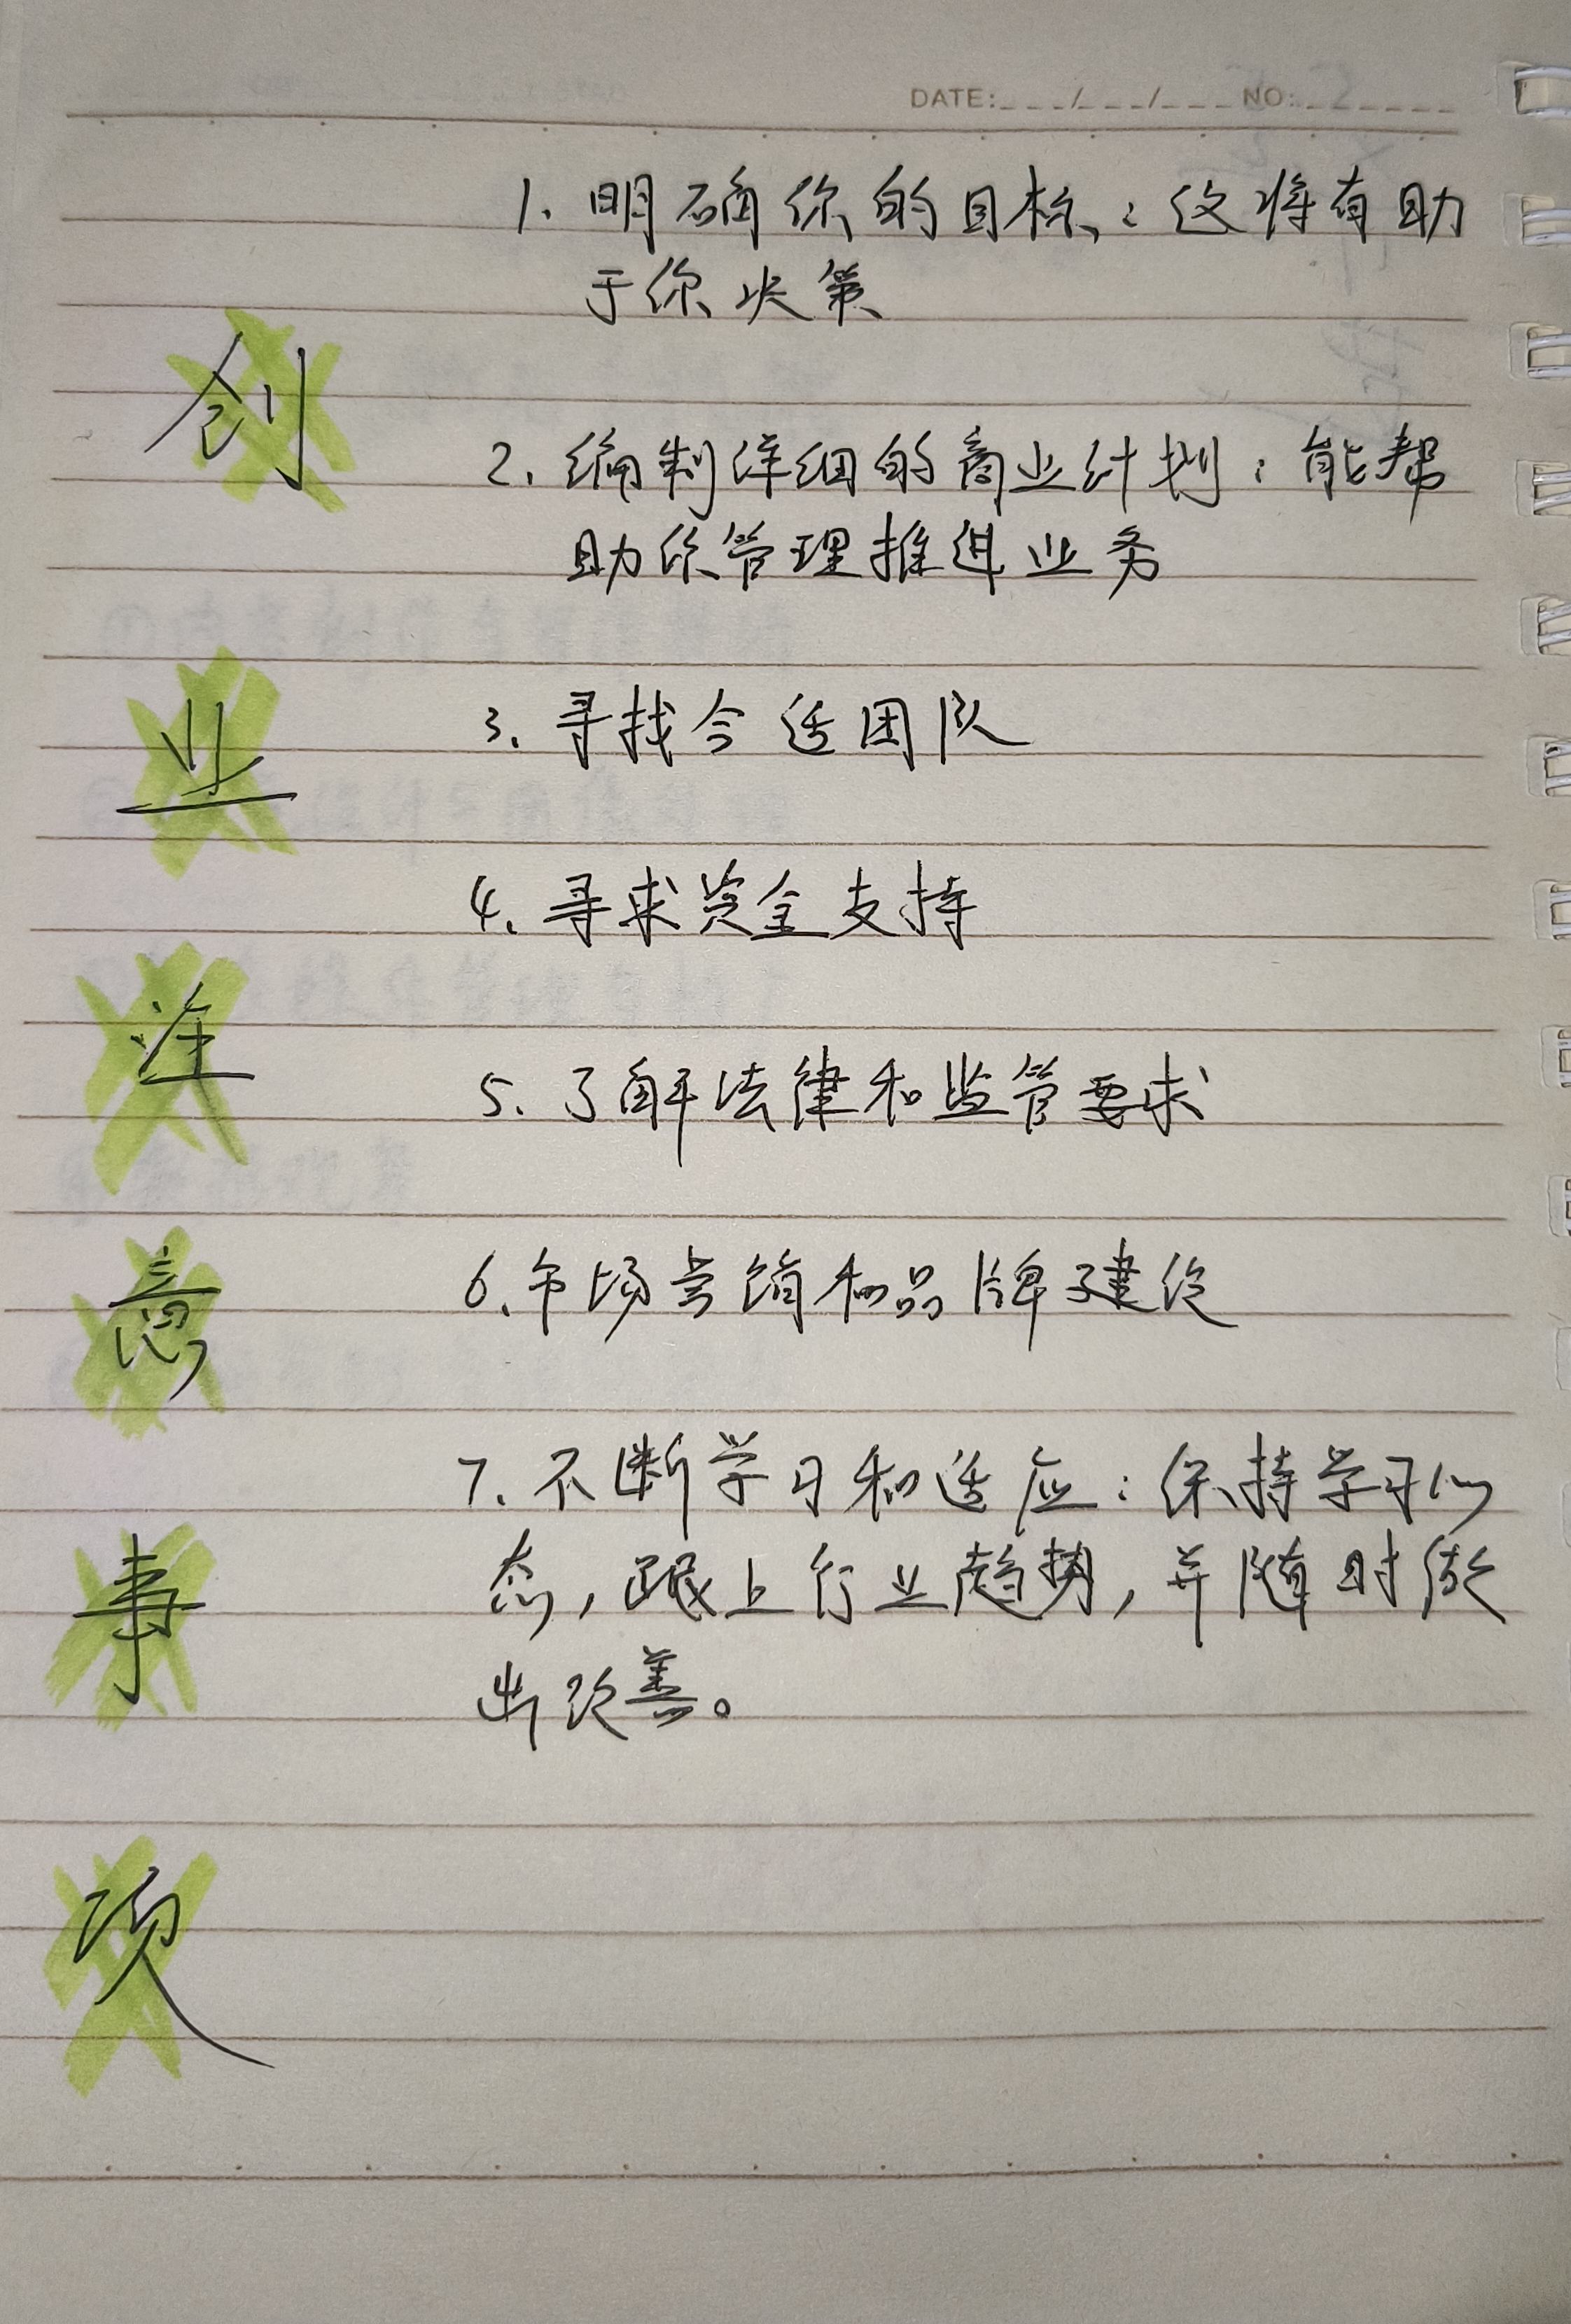 DATE:___/___/___ NO:_____
创业注意事项
1. 明确你的目标：这将有助
于你决策
2. 编制详细的商业计划：能帮
助你管理推进业务
3. 寻找合适团队
4. 寻求资金支持
5. 了解法律和监管要求
6. 市场营销和品牌建设
7. 不断学习和适应：保持学习心
态，跟上行业趋势，并随时做
出改善。